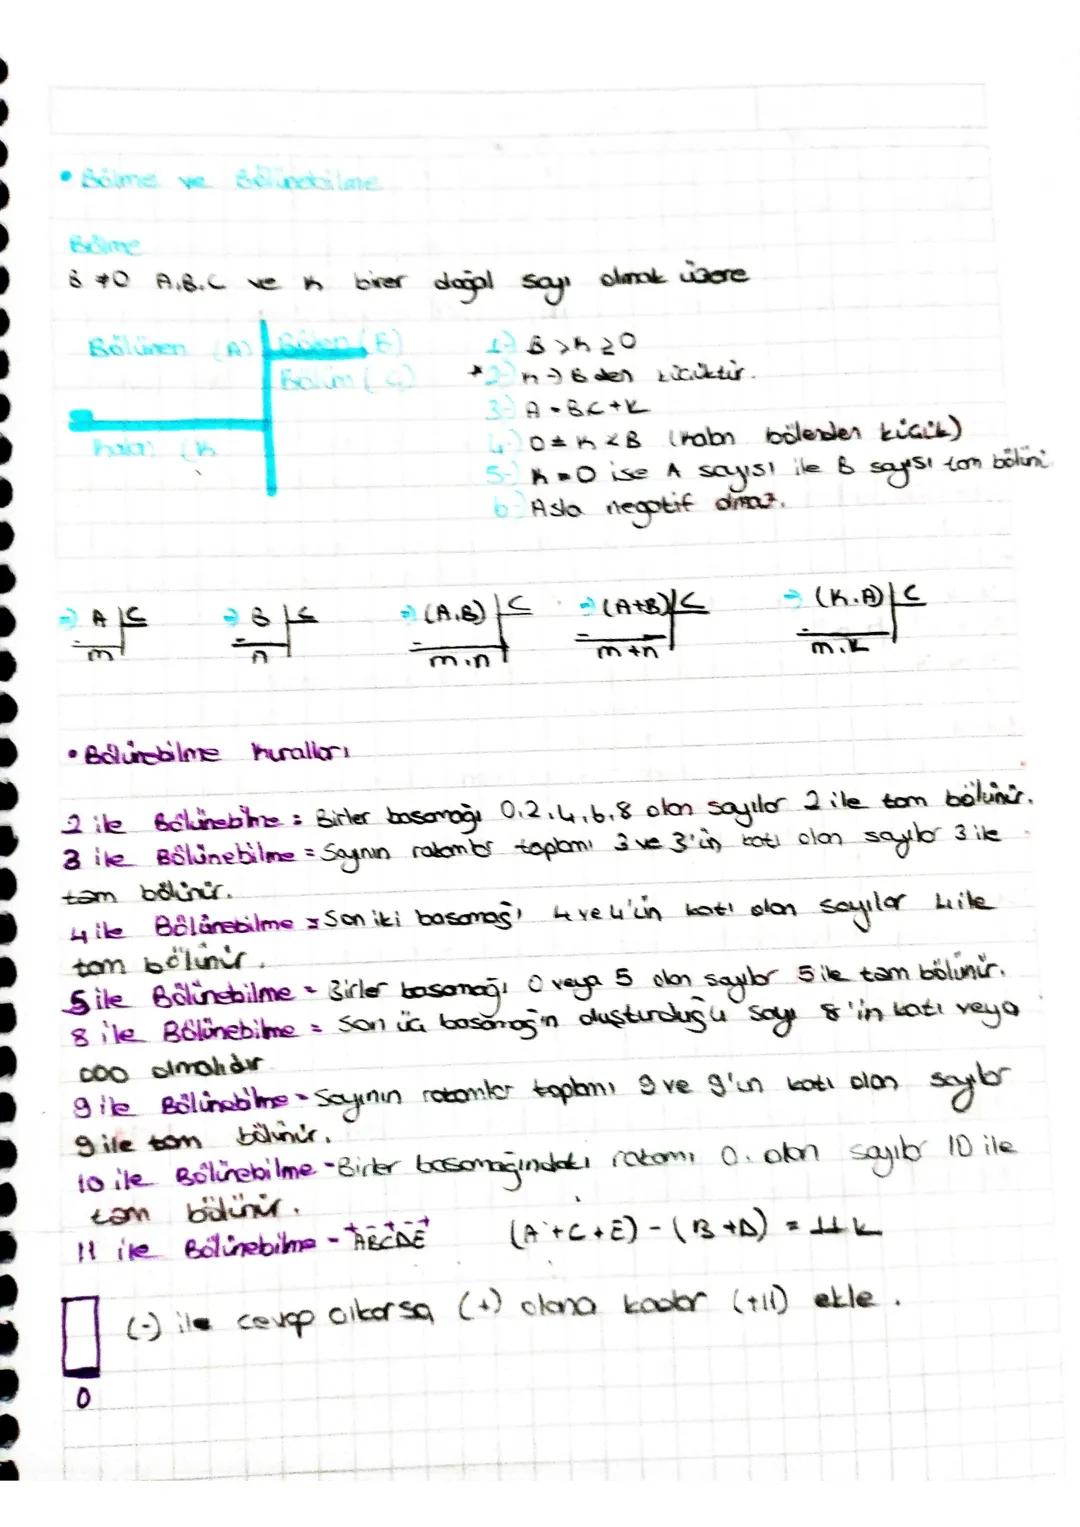 • Bölme ve Bölünebilme
Bölme
B ≠0 A.B.C ve K birer doğal sayı olmak üzere
Bölünen (A) Bölen (B)
Bölüm ( C)
kalan (K
1-) B >K ≥0
*2-) K → B den küçüktür.
3-) A = B.C+K
4-) 0 ≤ K < B (kalan bölenden küçük)
5-) K = 0 ise A sayısı ile B sayısı tam bölünü
6-) Asla negatif olmaz.
⇒ A | C ⇒ B | C ⇒ (A.B) | C ⇒ (A+B) | C ⇒ (K.A) | C
- m - n - m.n - m+n - m.K
• Bölünebilme Kuralları
2 ile Bölünebilme = Birler basamağı 0,2,4,6,8 olan sayılar 2 ile tam bölünür.
3 ile Bölünebilme = Sayının rakamlar toplamı 3 ve 3'ün katı olan sayılar 3 ile
tam bölünür.
4 ile Bölünebilme = Son iki basamağı 4 ve 4'ün katı olan sayılar 4 ile
tam bölünür.
5 ile Bölünebilme = Birler basamağı 0 veya 5 olan sayılar 5 ile tam bölünür.
8 ile Bölünebilme = Son üç basamağın oluşturduğu sayı 8'in katı veya
000 olmalıdır
9 ile Bölünebilme = Sayının rakamlar toplamı 9 ve 9'un katı olan sayılar
9 ile tam bölünür.
10 ile Bölünebilme = Birler basamağındaki rakamı 0. olan sayılar 10 ile
tam bölünür.
11 ile Bölünebilme = ABCDE (A+C+E) - (B+D) = 11 k
+ - + - +
(-) ile cevap çıkarsa, (+) olana kadar (+11) ekle.
0